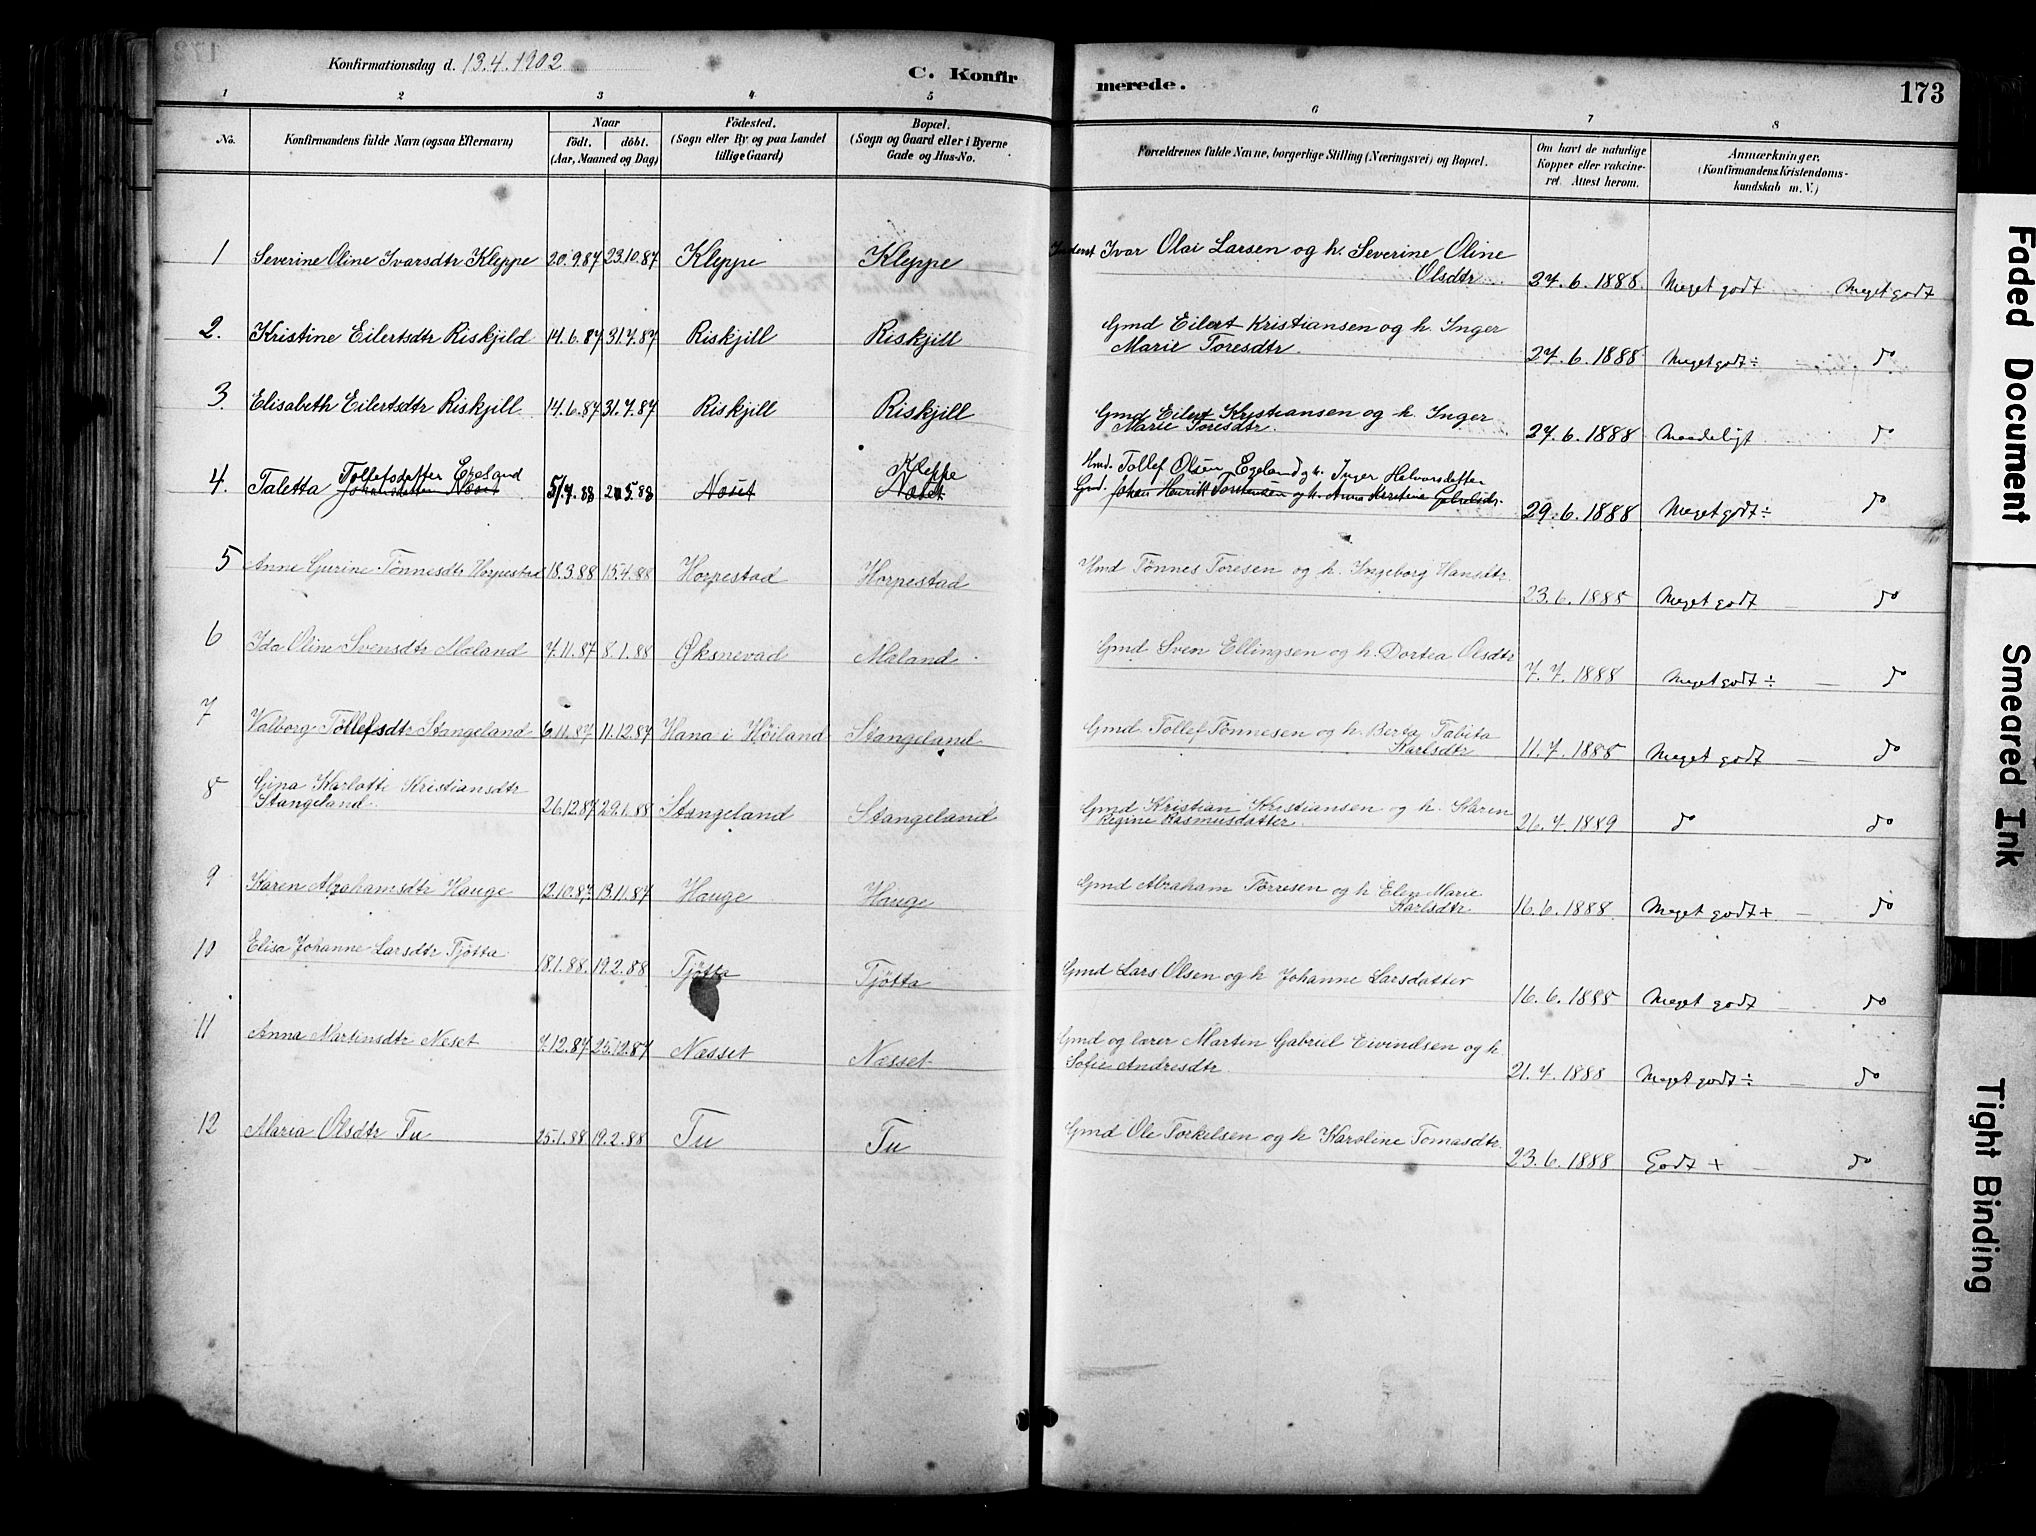 Konfirmationsdag d. 13.4.1902
C. Konfirmerede.
173
1 2 3 4 5 6 7 8
No.
Konfirmandens fulde Navn (ogsaa Efternavn)
Naar
født, døbt.
(Aar, Maaned og Dag)
Fødested.
(Sogn eller By og paa Landet tillige Gaard)
Bopæl.
(Sogn og Gaard eller i Byerne Gade og Hus-No.
Forældrenes fulde Navne, borgerlige Stilling (Næringsvei) og Bopæl.
Om havt de naturlige Kopper eller vakcineret. Attest herom.
Anmærkninger.
(Konfirmandens Kristendomskundskab m. V.)
1 Severine Oline Ivarsdtr Kleppe 20.9.87 23.10.87 Kleppe Kleppe Inderst Ivar Olai Larsen og h. Severine Oline
Olsdtr 27.6.1888 Meget godt Meget godt
2. Kristine Eilertsdtr Riskjild 14.6.87 31.7.87 Riskjill Riskjill Gmd Eilert Kristiansen og h. Inger
Marie Toresdtr. 27.6.1888 Meget godt ÷ do
3. Elisabeth Eilertsdtr Riskjill 14.6.87 31.7.87 Riskjill Riskjill Gmd Eilert Kristiansen og h. Inger
Marie Toresdtr. 27.6.1888 Maadeligt do
Tollefsdatter Egeland Kleppe Hmd. Tollef Olsen Egeland og h. Inger Helvorsdatter
4. Taletta Johansdatter Nœset 5/4.88 5.88 Nœset Nœset Gmd. Johan Henrik Torstensen og h. Anna Kristine Gabrielsdr.
29.6.1888 Meget godt ÷ do
5 Anne Gurine Tønnesdtr Horpestad 18.3.88 15.4.88 Horpestad Horpestad Hmd Tønnes Toresen og h. Ingeborg Hansdtr.
23.6.1888 Meget godt — do
6 Ida Oline Svensdtr Mæland 7.11.87 8.1.88 Øksnevad Mæland Gmd Sven Ellingsen og h. Dortea Olsdtr
7.7.1888 Meget godt ÷ — do
7 Valborg Tollefsdtr Stangeland 6.11.87 11.12.87 Hana i Høiland Stangeland Gmd Tollef Tønnesen og h. Berta Tabita
Karlsdtr 11.7.1888 Meget godt — do
8 Gina Karlotte Kristiansdtr
Stangeland 26.12.87 29.1.88 Stangeland Stangeland Gmd Kristian Kristiansen og h. Karen
Regine Rasmusdatter 26.7.1889 do do
9 Karen Abrahamsdtr Hauge 12.10.87 13.11.87 Hauge Hauge Gmd Abraham Torresen og h Elen Marie
Karlsdtr. 16.6.1888. Meget godt + — do
10 Elisa Johanne Larsdtr Tjøtta 18.1.88. 19.2.88 Tjøtta Tjøtta Gmd Lars Olsen og h Johanne Larsdatter
16.6.1888 Meget godt — do
11 Anna Martinsdtr Neset 7.12.87 25.12.87 Næsset Næsset Gmd og lærer Martin Gabriel Eivindsen og h
Sofie Andresdtr 21.7.1888 Meget godt ÷ — do
12 Maria Olsdtr Tu 25.1.88 19.2.88 Tu Tu Gmd Ole Torkelsen og h Karoline Tomasdtr
23.6.1888 Godt + — do
Faded Document
Smeared Ink
Tight Binding